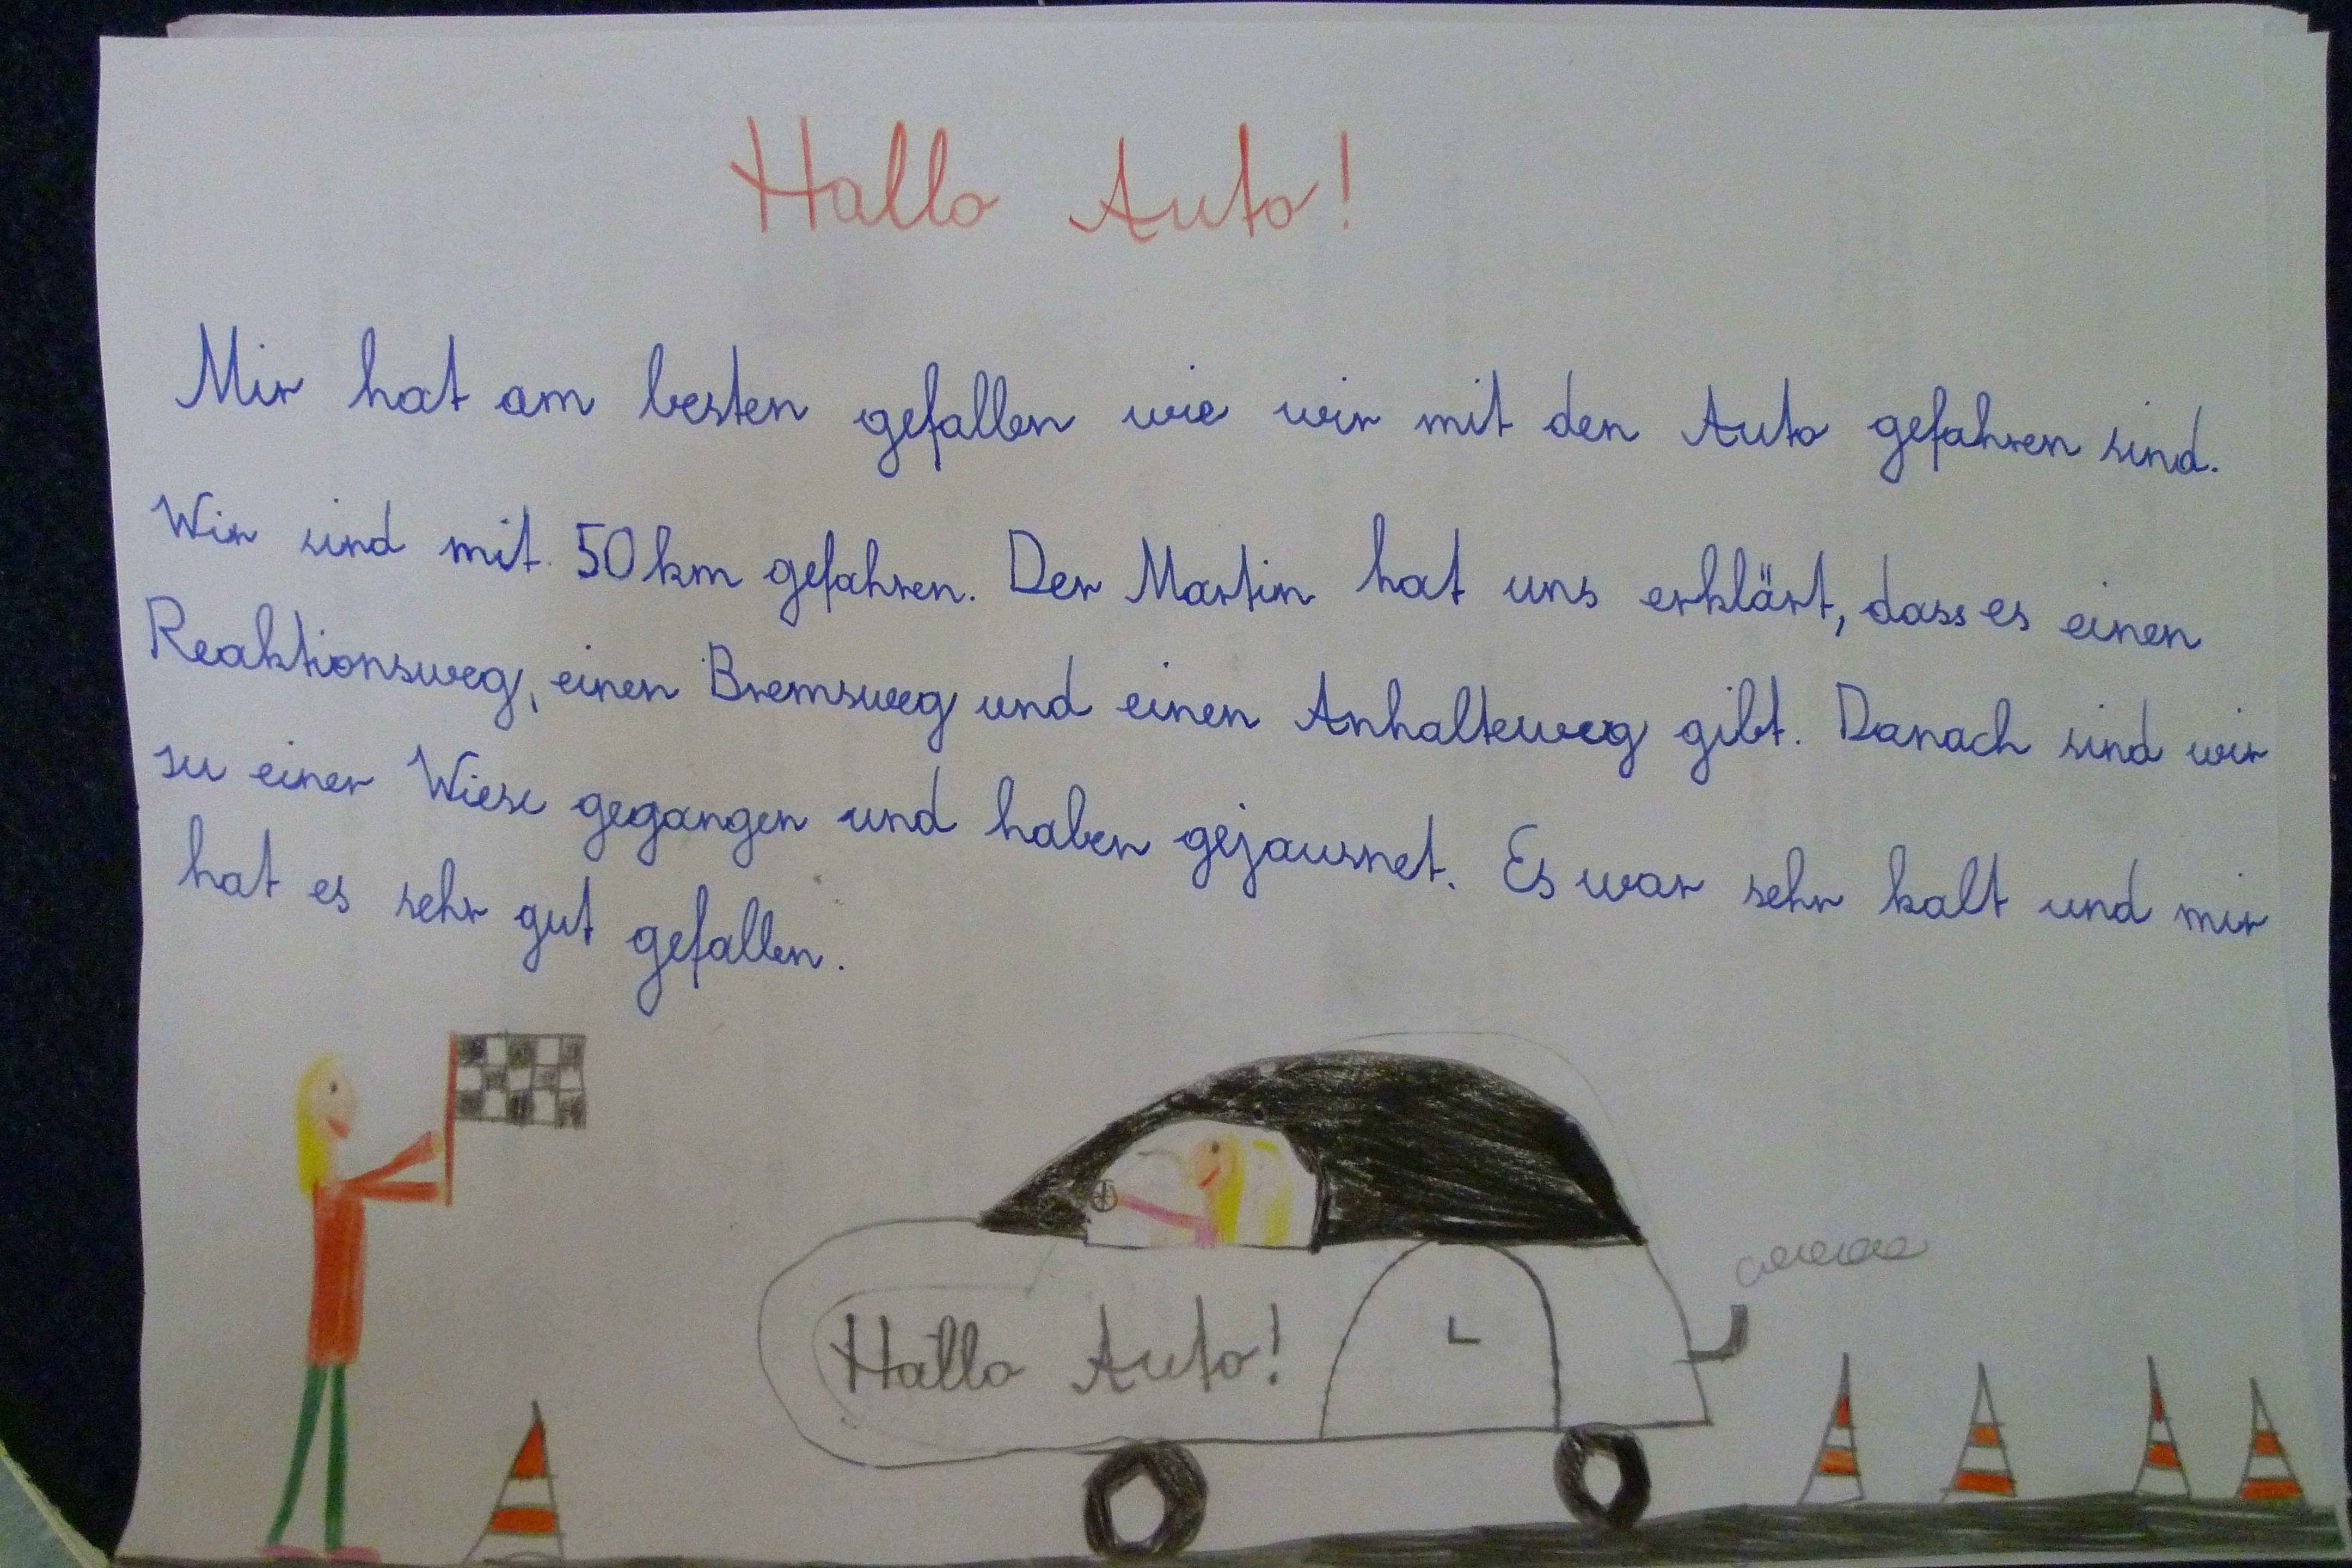 Hallo Auto!
Mir hat am besten gefallen wie wir mit den Auto gefahren sind.
Wir sind mit 50 km gefahren. Der Martin hat uns erklärt, dass es einen
Reaktionsweg, einen Bremsweg und einen Anhalteweg gibt. Danach sind wir
zu einer Wiese gegangen und haben gejausnet. Es war sehr kalt und mir
hat es sehr gut gefallen.
Hallo Auto!